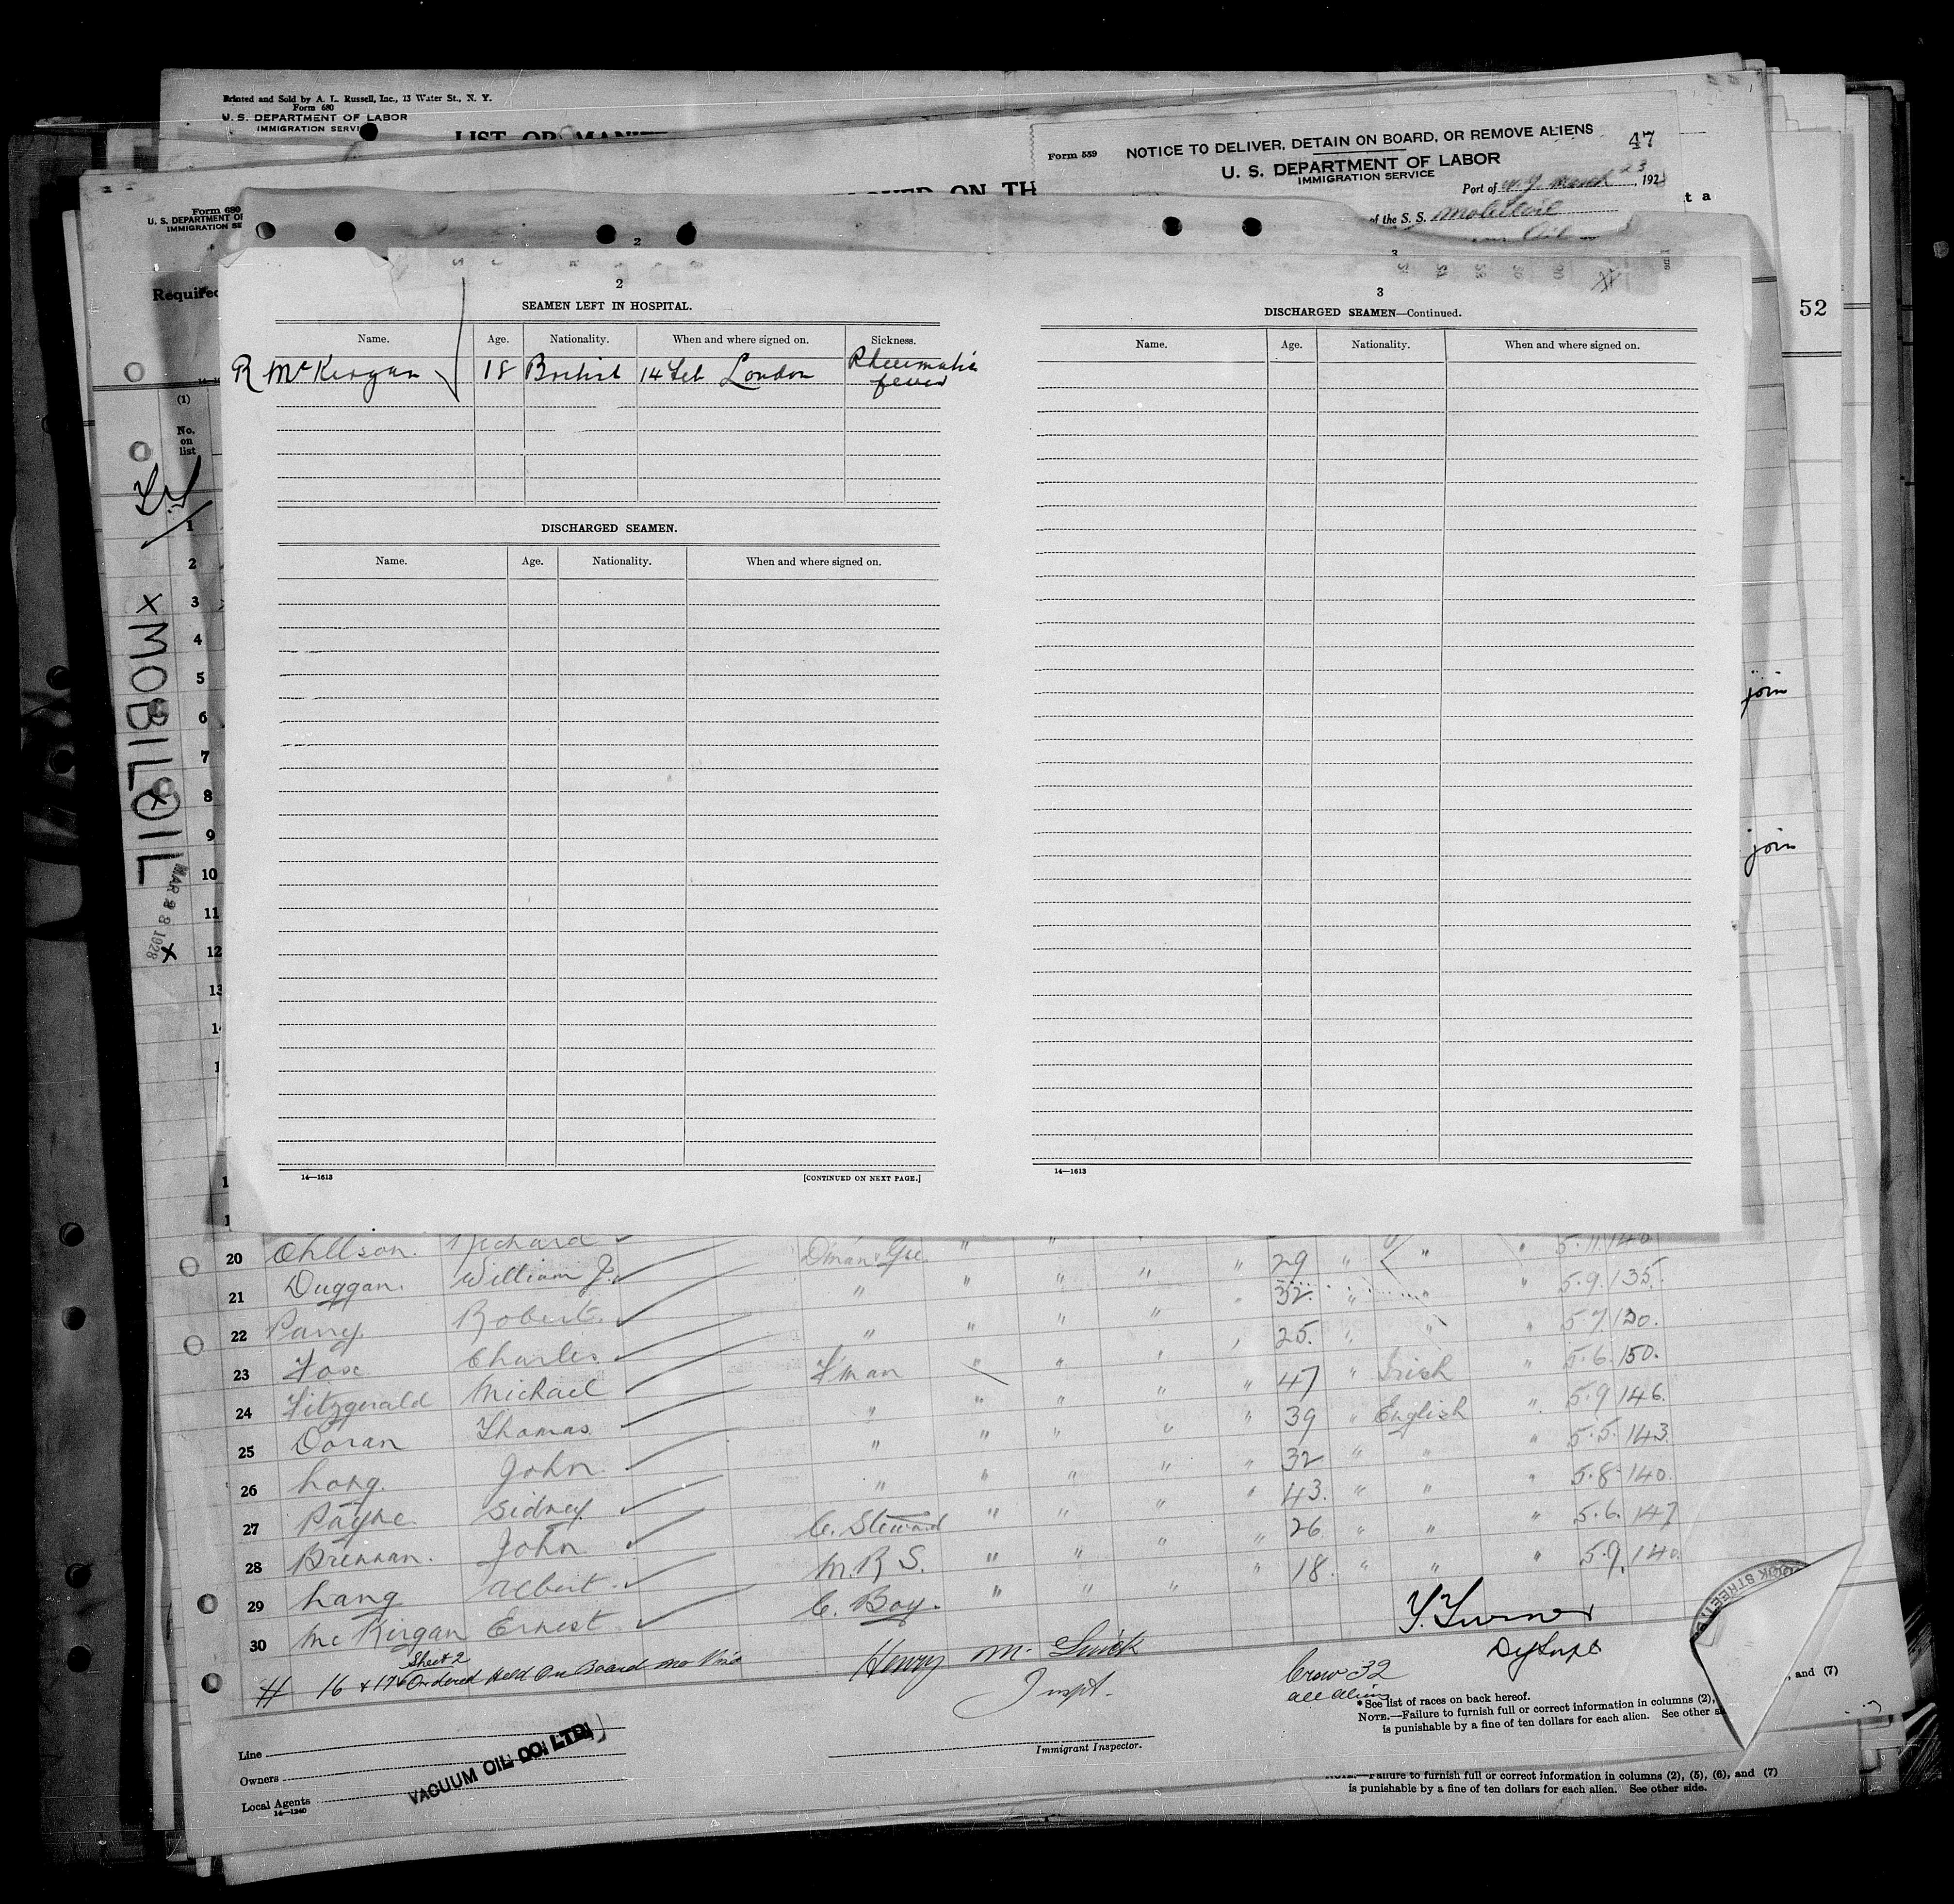 Printed and Sold by A. L. Russell, Inc., 13 Water St., N. Y.
Form 680
U. S. DEPARTMENT OF LABOR
IMMIGRATION SERVICE
LIST OR MANIF
Form 559
NOTICE TO DELIVER, DETAIN ON BOARD, OR REMOVE ALIENS
47
U. S. DEPARTMENT OF LABOR
IMMIGRATION SERVICE
Port of N. Y. March 23, 192
of the S. S. Mobiloil
Oil
ON TH
t a
Form 680
U. S. DEPARTMENT OF
IMMIGRATION SE
Required
52
(1)
No. on list
2
SEAMEN LEFT IN HOSPITAL.
Name. Age. Nationality. When and where signed on. Sickness.
R McKirgan 18 British 14 Feb London Rheumatic fever
DISCHARGED SEAMEN.
Name. Age. Nationality. When and where signed on.
14—1613
[CONTINUED ON NEXT PAGE.]
3
DISCHARGED SEAMEN—Continued.
Name. Age. Nationality. When and where signed on.
14—1613
1
2
3
4
5
6
7
8
9
10
11
12
x MOBILOIL
MAR 28 1928
x
join
join
20 Ohllson. Richard D'man & Gre. " " 29 " " " 5.11. 140
21 Duggan. William J. " " " " " 32. " " " 5.9. 135.
22 Parry. Robert. " " " " " 25. " " " 5.7. 130.
23 Fox Charles. F'man " " " " 47 " Irish " 5.6. 150.
24 Fitzgerald Michael " " " " " 39 " English " 5.9 146.
25 Doran Thomas. " " " " " 32 " " " 5.5. 143.
26 Long. John. " " " " " 43. " " " 5.8. 140.
27 Payne. Sidney. C. Steward " " " " 26 " " " 5.6. 147
28 Brennan. John M.R.S. " " " " 18. " " " 5.9. 140.
29 Lang Albert. C. Boy. " " "
30 McKirgan Ernest
# 16 & 17 Sheet 2 Ordered Held On Board no Visa
Henry M.
Inspt.
Y. Turner
Crew 32
all aliens
*See list of races on back hereof.
NOTE.—Failure to furnish full or correct information in columns (2),
is punishable by a fine of ten dollars for each alien. See other
, and (7)
Line
Owners
Local Agents
14—1240
VACUUM OIL CO. LTD.
Immigrant Inspector.
STREET
NOTE.—Failure to furnish full or correct information in columns (2), (5), (6), and (7)
is punishable by a fine of ten dollars for each alien. See other side.